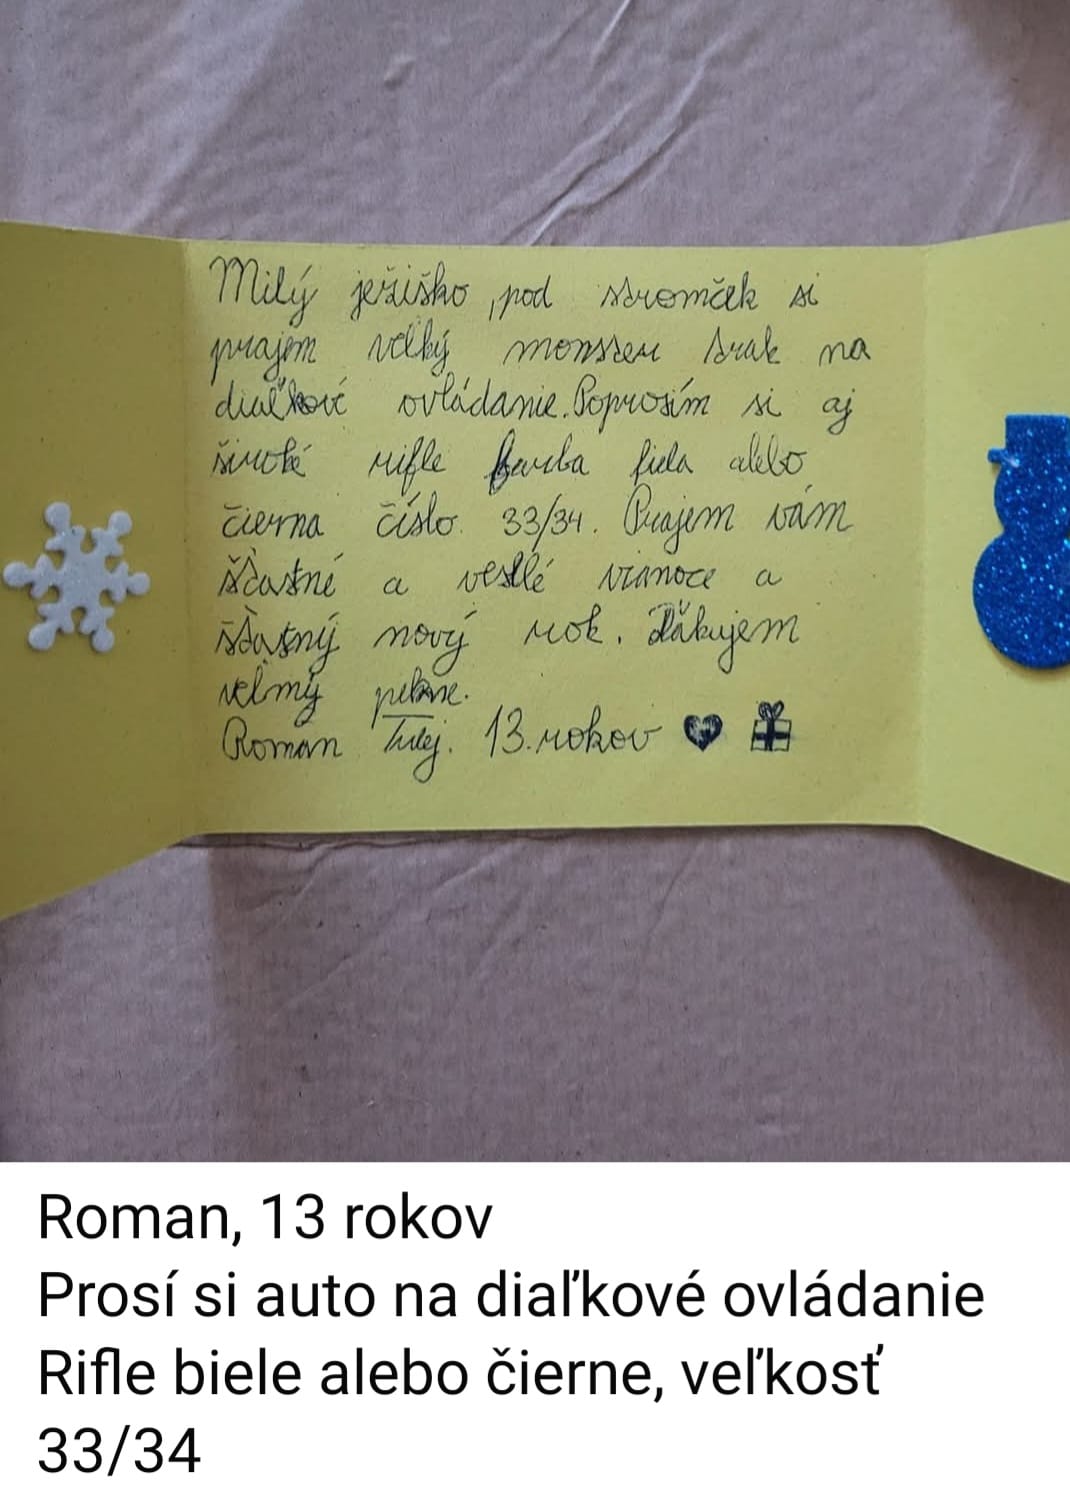 Milý ježiško, pod stromček si
prajem velký monster trak na
diaľkové ovládanie. Poprosím si aj
široké rifle farba biela alebo
čierna číslo 33/34. Prajem vám
štastné a veselé vianoce a
štastný nový rok. Ďákujem
velmy pekne.
Roman 13. rokov
Roman, 13 rokov
Prosí si auto na diaľkové ovládanie
Rifle biele alebo čierne, veľkosť
33/34